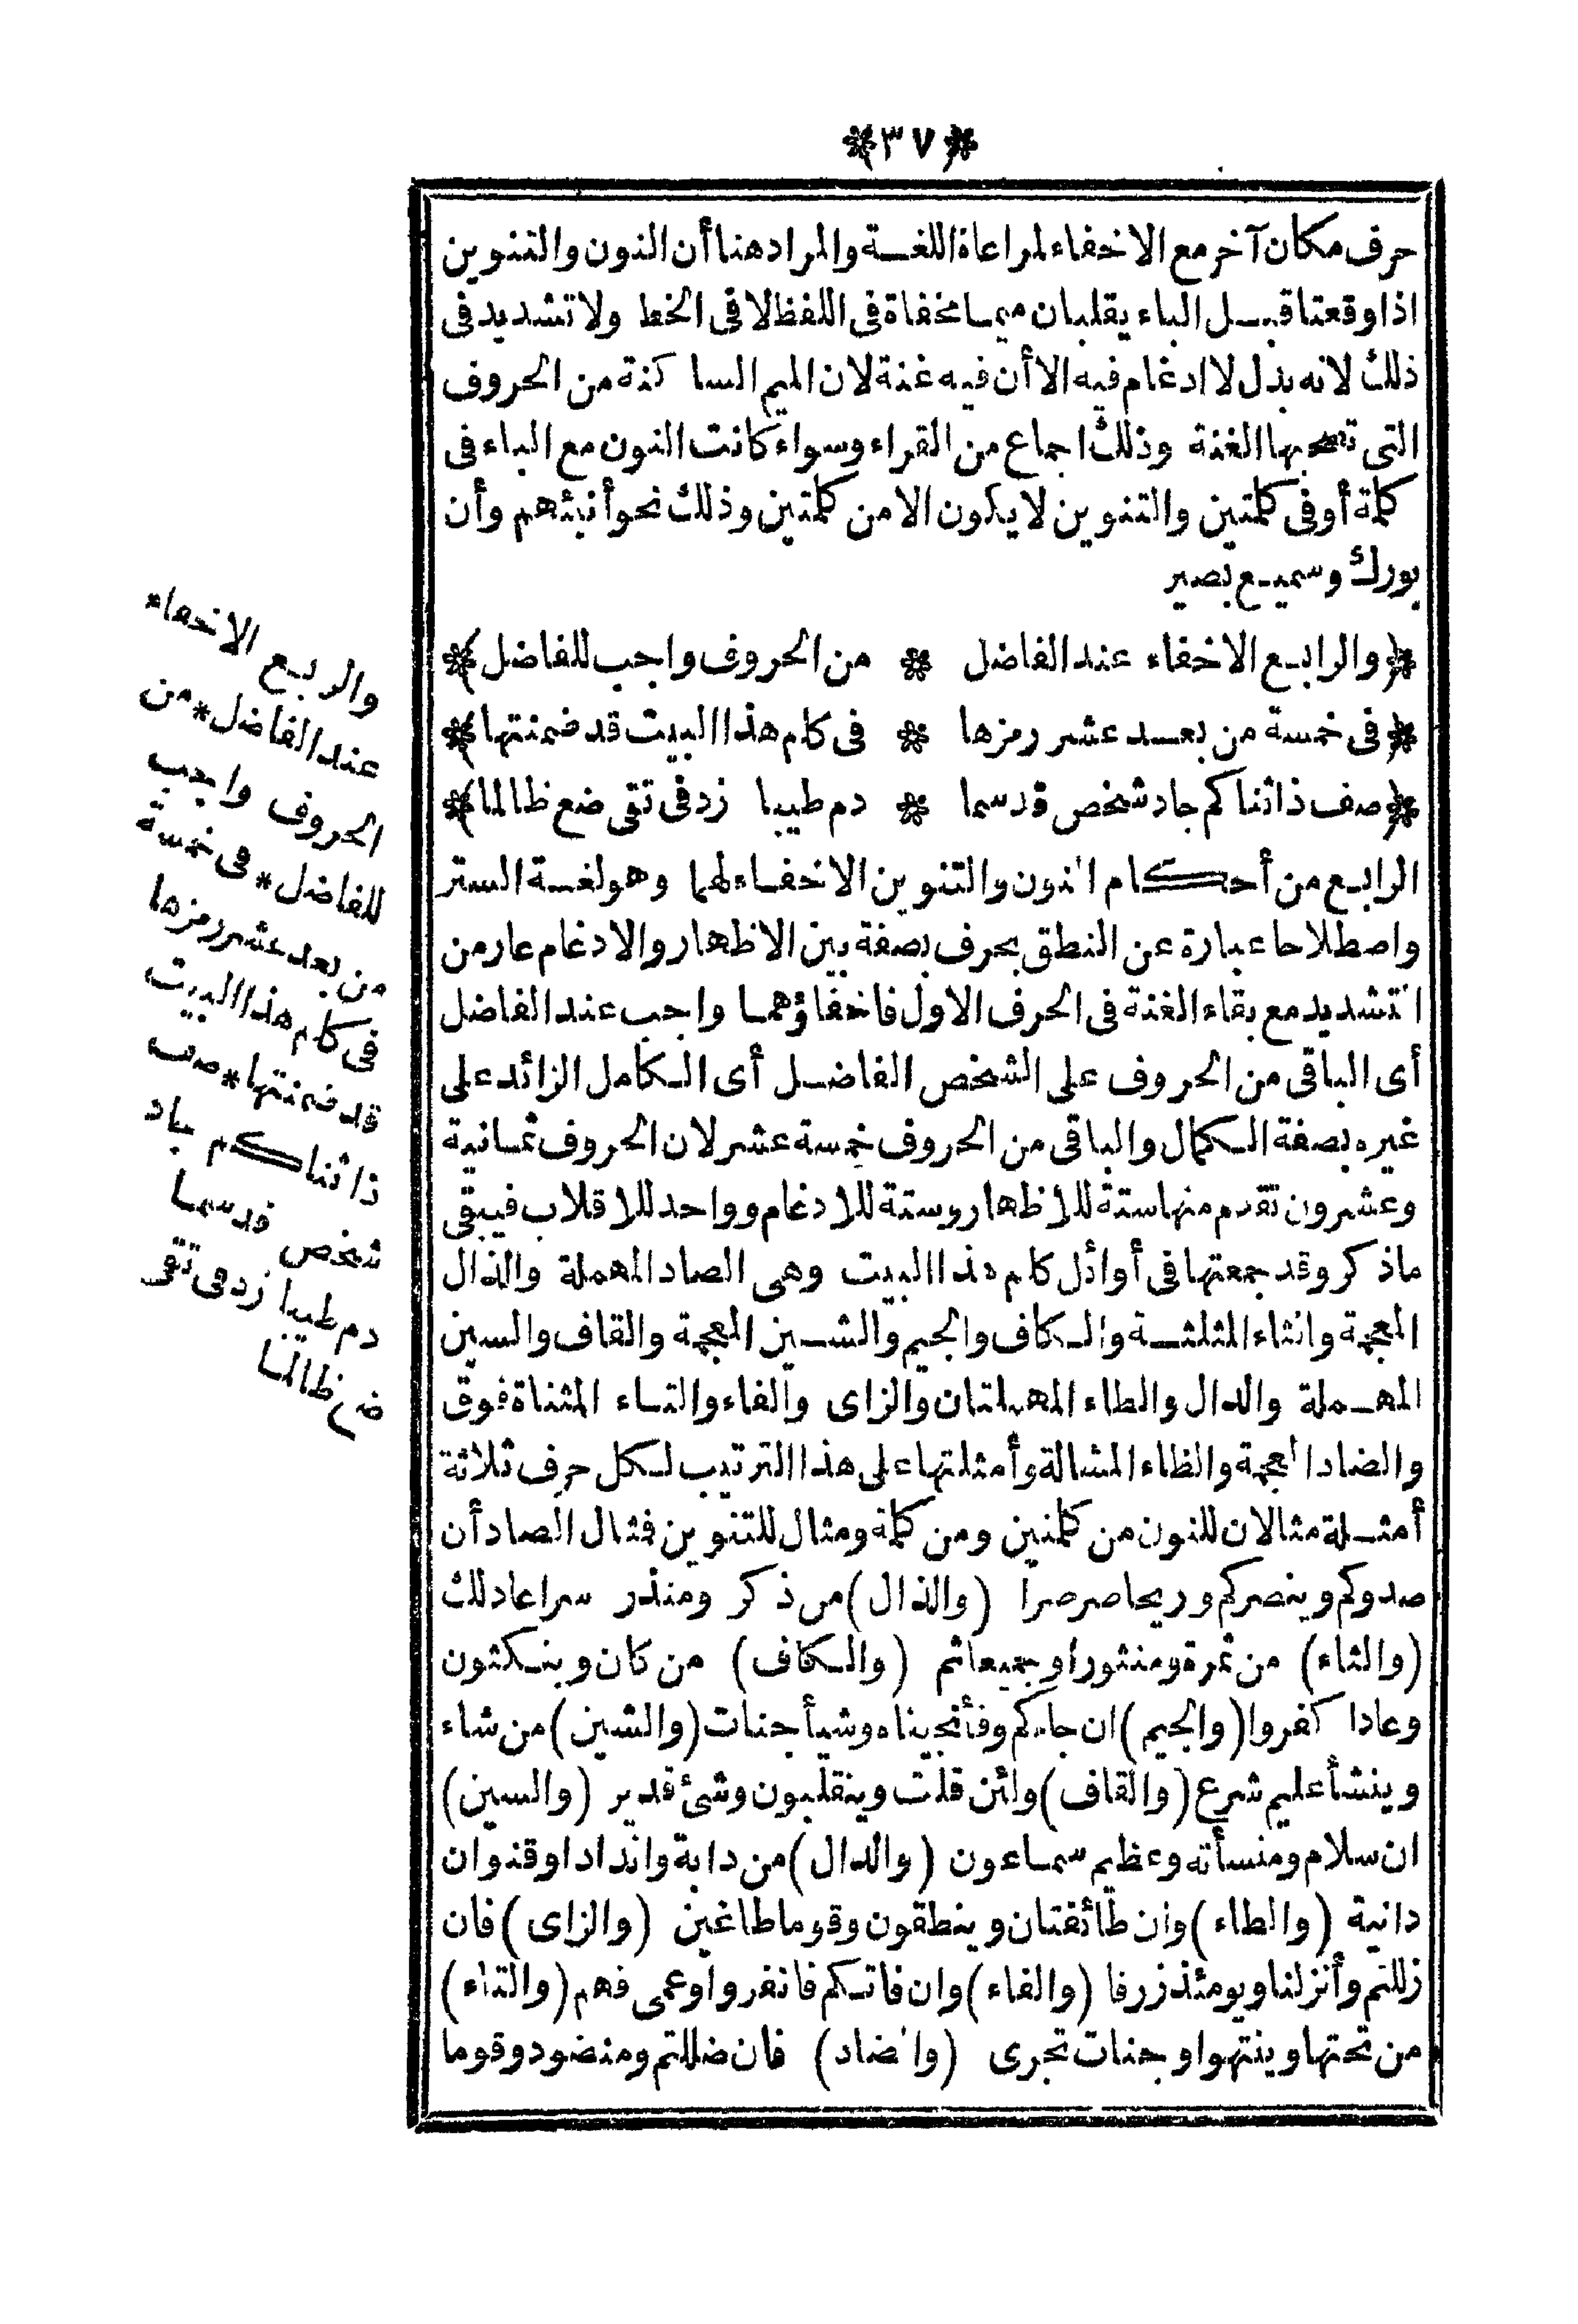 ٣٧
حرف مكان آخر مع الاخفاء لمراعاة اللغة والمراد هنا أن النون والتنوين
اذا وقعتا قبل الباء يقلبان ميما مخفاة فى اللفظ لا فى الخط ولا تشديد فى
ذلك لانه بدل لا ادغام فيه الا أن فيه غنة لان الميم الساكنة من الحروف
التى تصحبها الغنة وذلك اجماع من القراء وسواء كانت النون مع الباء فى
كلمة أو فى كلمتين والتنوين لا يكون الا من كلمتين وذلك نحو أنبئهم وأن
بورك وسميع بصير
﴿والرابع الاخفاء عند الفاضل * من الحروف واجب للفاضل﴾
﴿فى خمسة من بعد عشر رمزها * فى كلم هذا البيت قد ضمنتها﴾
﴿صف ذا ثنا كم جاد شخص قد سما * دم طيبا زد فى تقى ضع ظالما﴾
الرابع من أحكام النون والتنوين الاخفاء لهما وهو لغة الستر
واصطلاحا عبارة عن النطق بحرف بصفة بين الاظهار والادغام عار من
التشديد مع بقاء الغنة فى الحرف الاول فاخفاؤهما واجب عند الفاضل
أى الباقى من الحروف على الشخص الفاضل أى الكامل الزائد على
غيره بصفة الكمال والباقى من الحروف خمسة عشر لان الحروف ثمانية
وعشرون تقدم منها ستة للاظهار وستة للادغام وواحد للاقلاب فيبقى
ما ذكر وقد جمعتها فى أوائل كلم هذا البيت وهى الصاد المهملة والذال
المعجمة والثاء المثلثة والكاف والجيم والشين المعجمة والقاف والسين
المهملة والدال والطاء المهملتان والزاى والفاء والتاء المثناة فوق
والضاد المعجمة والظاء المشالة وأمثلتها على هذا الترتيب لكل حرف ثلاثة
أمثلة مثالان للنون من كلمتين ومن كلمة ومثال للتنوين فمثال الصاد أن
صدوكم وينصركم وريحا صرصرا (والذال) من ذكر ومنذر سراعا ذلك
(والثاء) من ثمرة ومنثورا وجميعا ثم (والكاف) من كان وينكثون
وعادا كفروا (والجيم) ان جاءكم وفأنجيناه وشيأ جنات (والشين) من شاء
وينشأ عليم شرع (والقاف) ولئن قلت وينقلبون وشئ قدير (والسين)
ان سلام ومنسأته وعظيم سماعون (والدال) من دابة وأندادا وقنوان
دانية (والطاء) وان طائفتان وينطقون وقوما طاغين (والزاى) فان
زللتم وأنزلنا ويومئذ زرفا (والفاء) وان فاتكم فانفروا وعمى فهم (والتاء)
من تحتها وينتهوا وجنات تجرى (والضاد) فان ضللتم ومنضود وقوما
والرابع الاخفاء
عند الفاضل * من
الحروف واجب
للفاضل * فى خمسة
من بعد عشر رمزها
فى كلم هذا البيت
قد ضمنتها * صف
ذا ثنا كم جاد
شخص قد سما
دم طيبا زد فى تقى
ضع ظالما